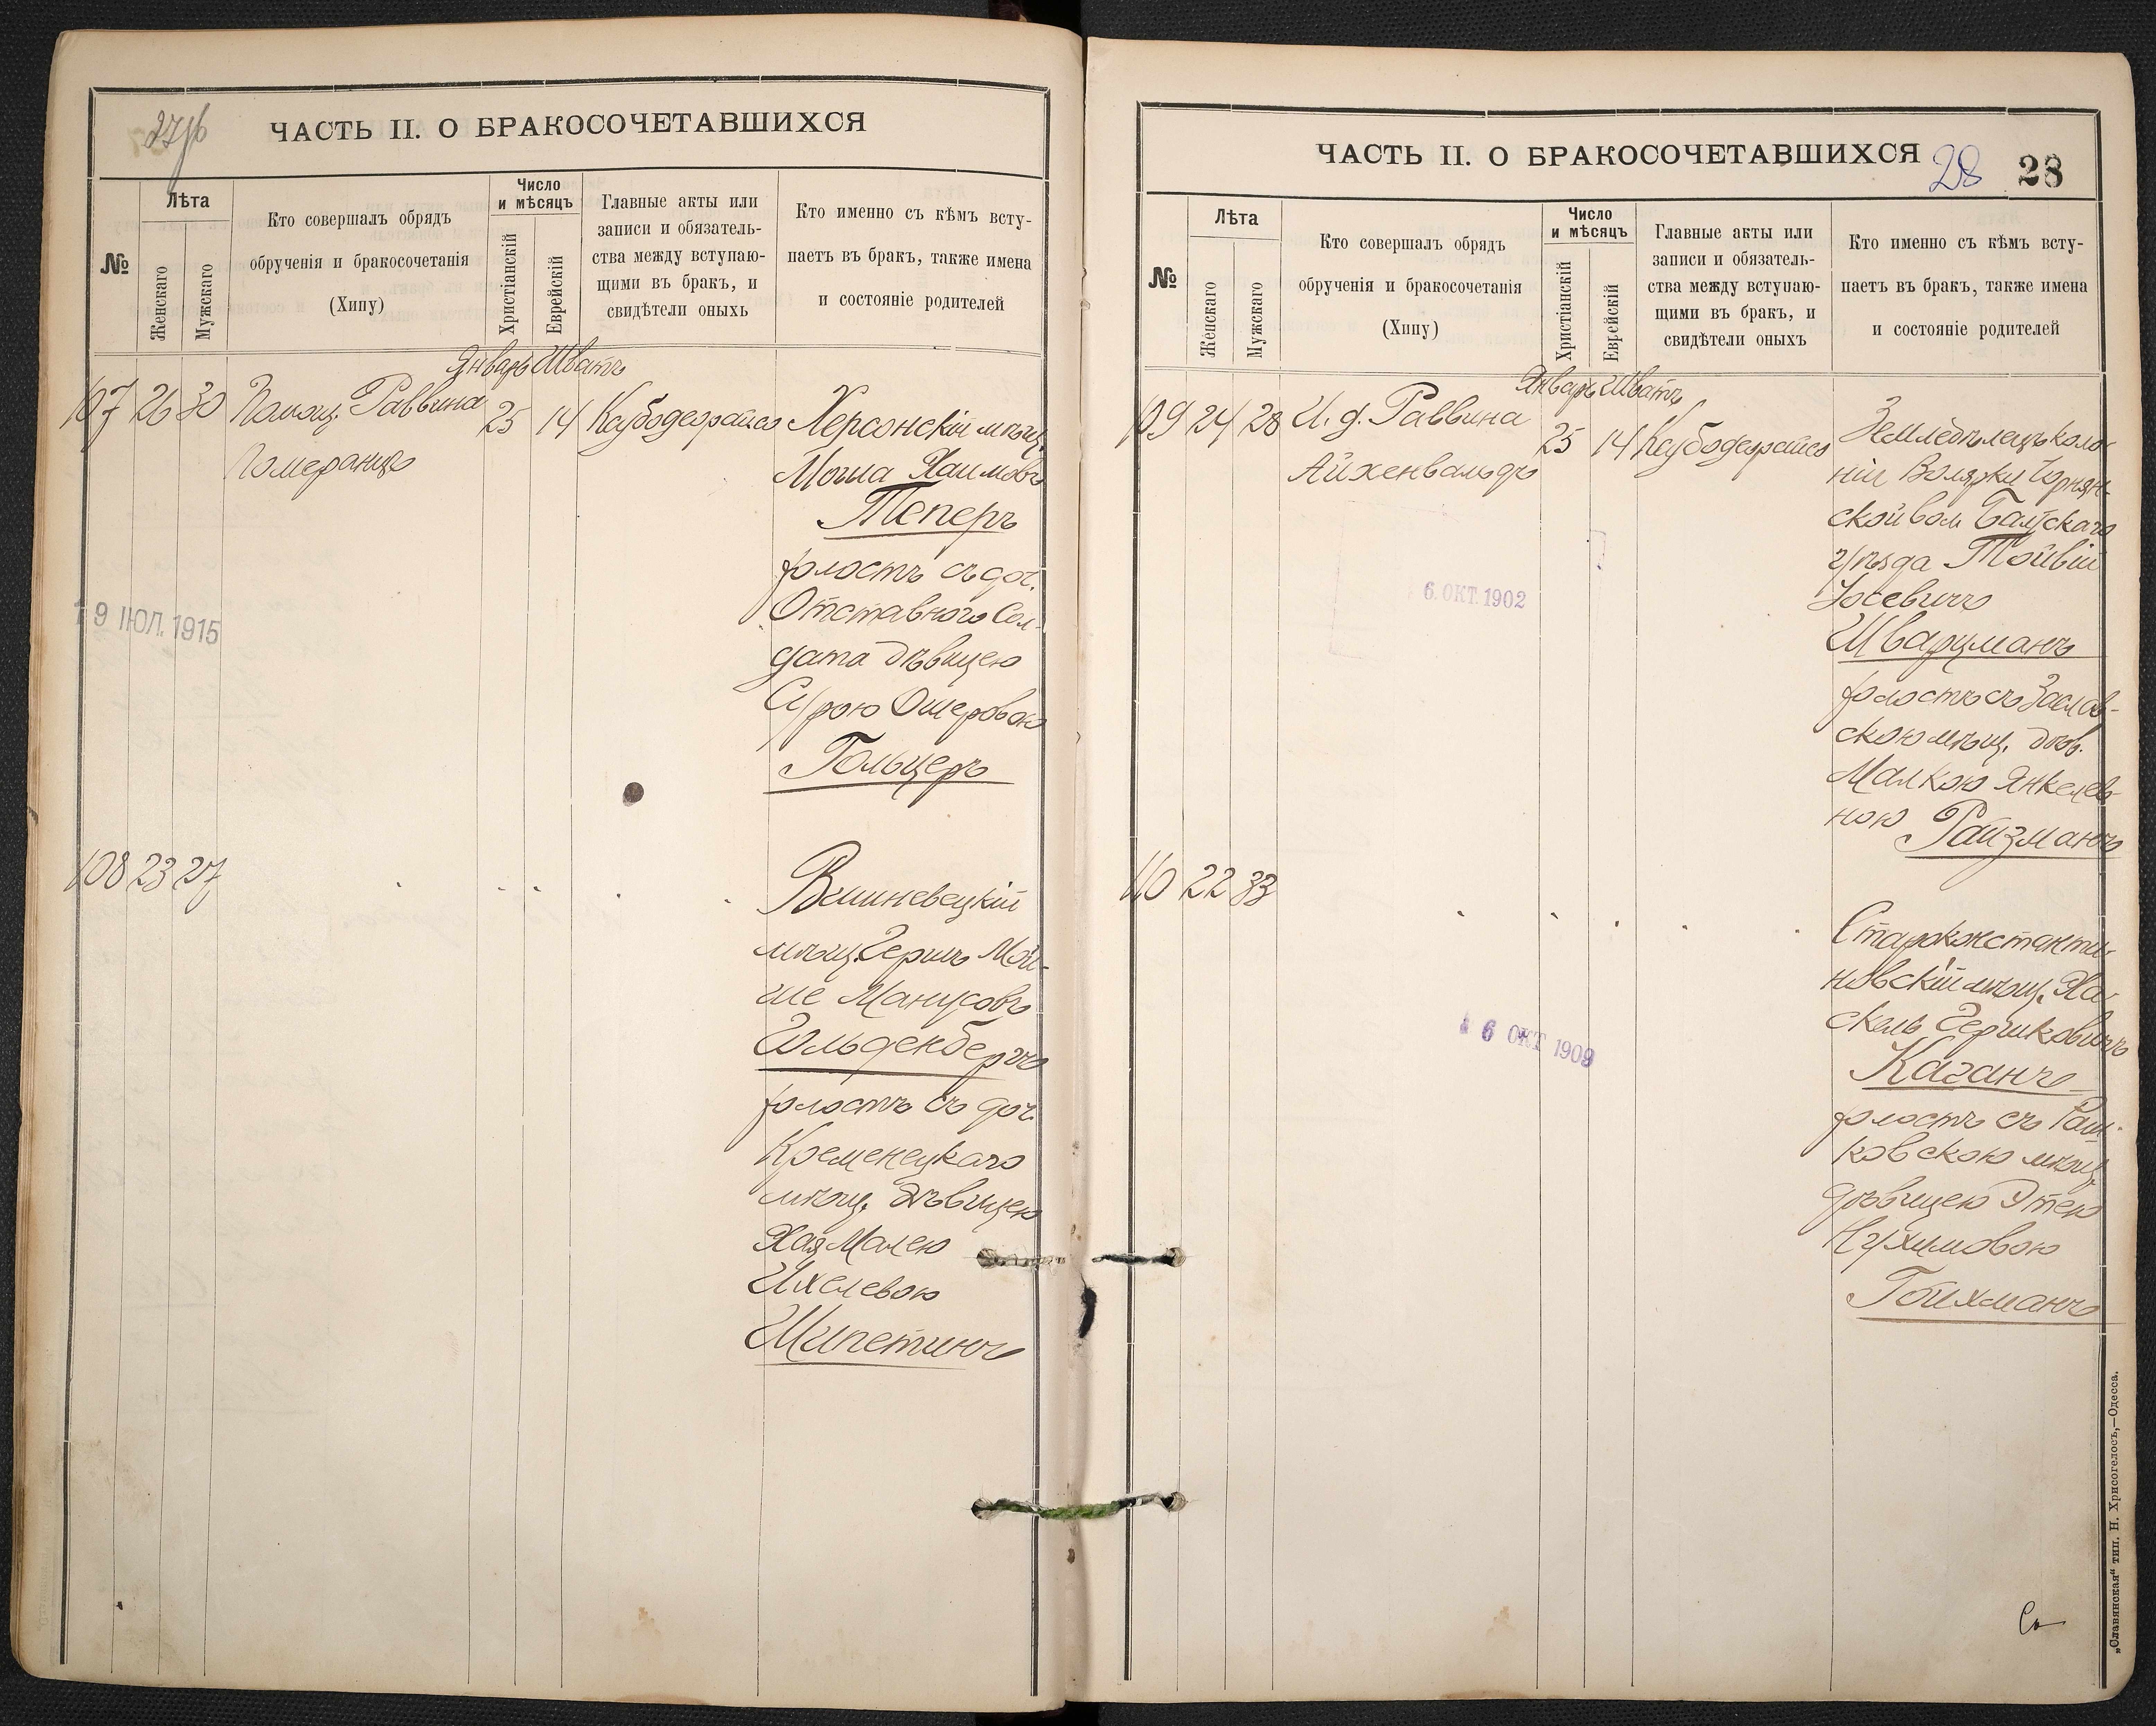 27 об
ЧАСТЬ II. О БРАКОСОЧЕТАВШИХСЯ
№
Лѣта
Женскаго
Мужскаго
Кто совершалъ обрядъ
обрученія и бракосочетанія
(Хипу)
Число
и мѣсяцъ
Христіанскій
Еврейскій
Главные акты или
записи и обязатель-
ства между вступаю-
щими въ бракъ, и
свидѣтели оныхъ
Кто именно съ кѣмъ всту-
паетъ въ бракъ, также имена
и состояніе родителей
Январь Шватъ
107 26 30 Помощ. Раввина 25 14
Померанцъ
Херсонскій мѣщ.
Мошка Хаимовъ
Теперъ
холостъ съ доч.
Отставного Сол-
дата дѣвицею
Сурою Ошеровою
Гольцеръ
19 ІЮЛ. 1915
108 23 27
Вишневецкій
мѣщ. Гершъ Мой-
ше Манусовъ
Гольденбергъ
холостъ съ доч.
Кременецкаго
мѣщ. дѣвицею
Хая Малею
Ихелевою
Шпетинъ
ЧАСТЬ II. О БРАКОСОЧЕТАВШИХСЯ
28 28
№
Лѣта
Женскаго
Мужскаго
Кто совершалъ обрядъ
обрученія и бракосочетанія
(Хипу)
Число
и мѣсяцъ
Христіанскій
Еврейскій
Главные акты или
записи и обязатель-
ства между вступаю-
щими въ бракъ, и
свидѣтели оныхъ
Кто именно съ кѣмъ всту-
паетъ въ бракъ, также имена
и состояніе родителей
Январь Шватъ
109 24 28 И. д. Раввина 25 14
Айхенвальдъ
Земледѣлецъ коло-
ніи Волярки Чорнян-
ской вол. Балтскаго
уѣзда Тойвій
Іосевичъ
Шварцманъ
холостъ съ Заслав-
скою мѣщ. дѣв.
Малкою Янкелев-
ною Райзманъ
6. ОКТ. 1902
110 22 33
Староконстанти-
новскій мѣщ. Ха-
скель Гершковичъ
Каганъ
холостъ съ Раш-
ковскою мѣщ.
дѣвицею Этею
Нухимовою
Гойхманъ
6 ОКТ 1909
„Славянская“ тип. Н. Хрисогелосъ,—Одесса.